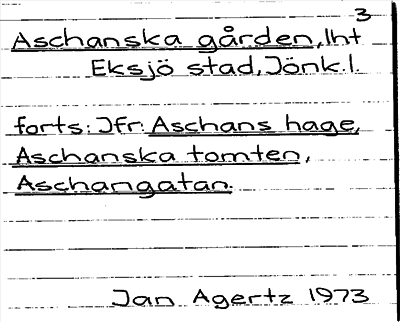 3
Aschanska gården, lht
Eksjö stad, Jönk.l.
forts: Jfr: Aschans hage,
Aschanska tomten,
Aschangatan.
Jan Agertz 1973